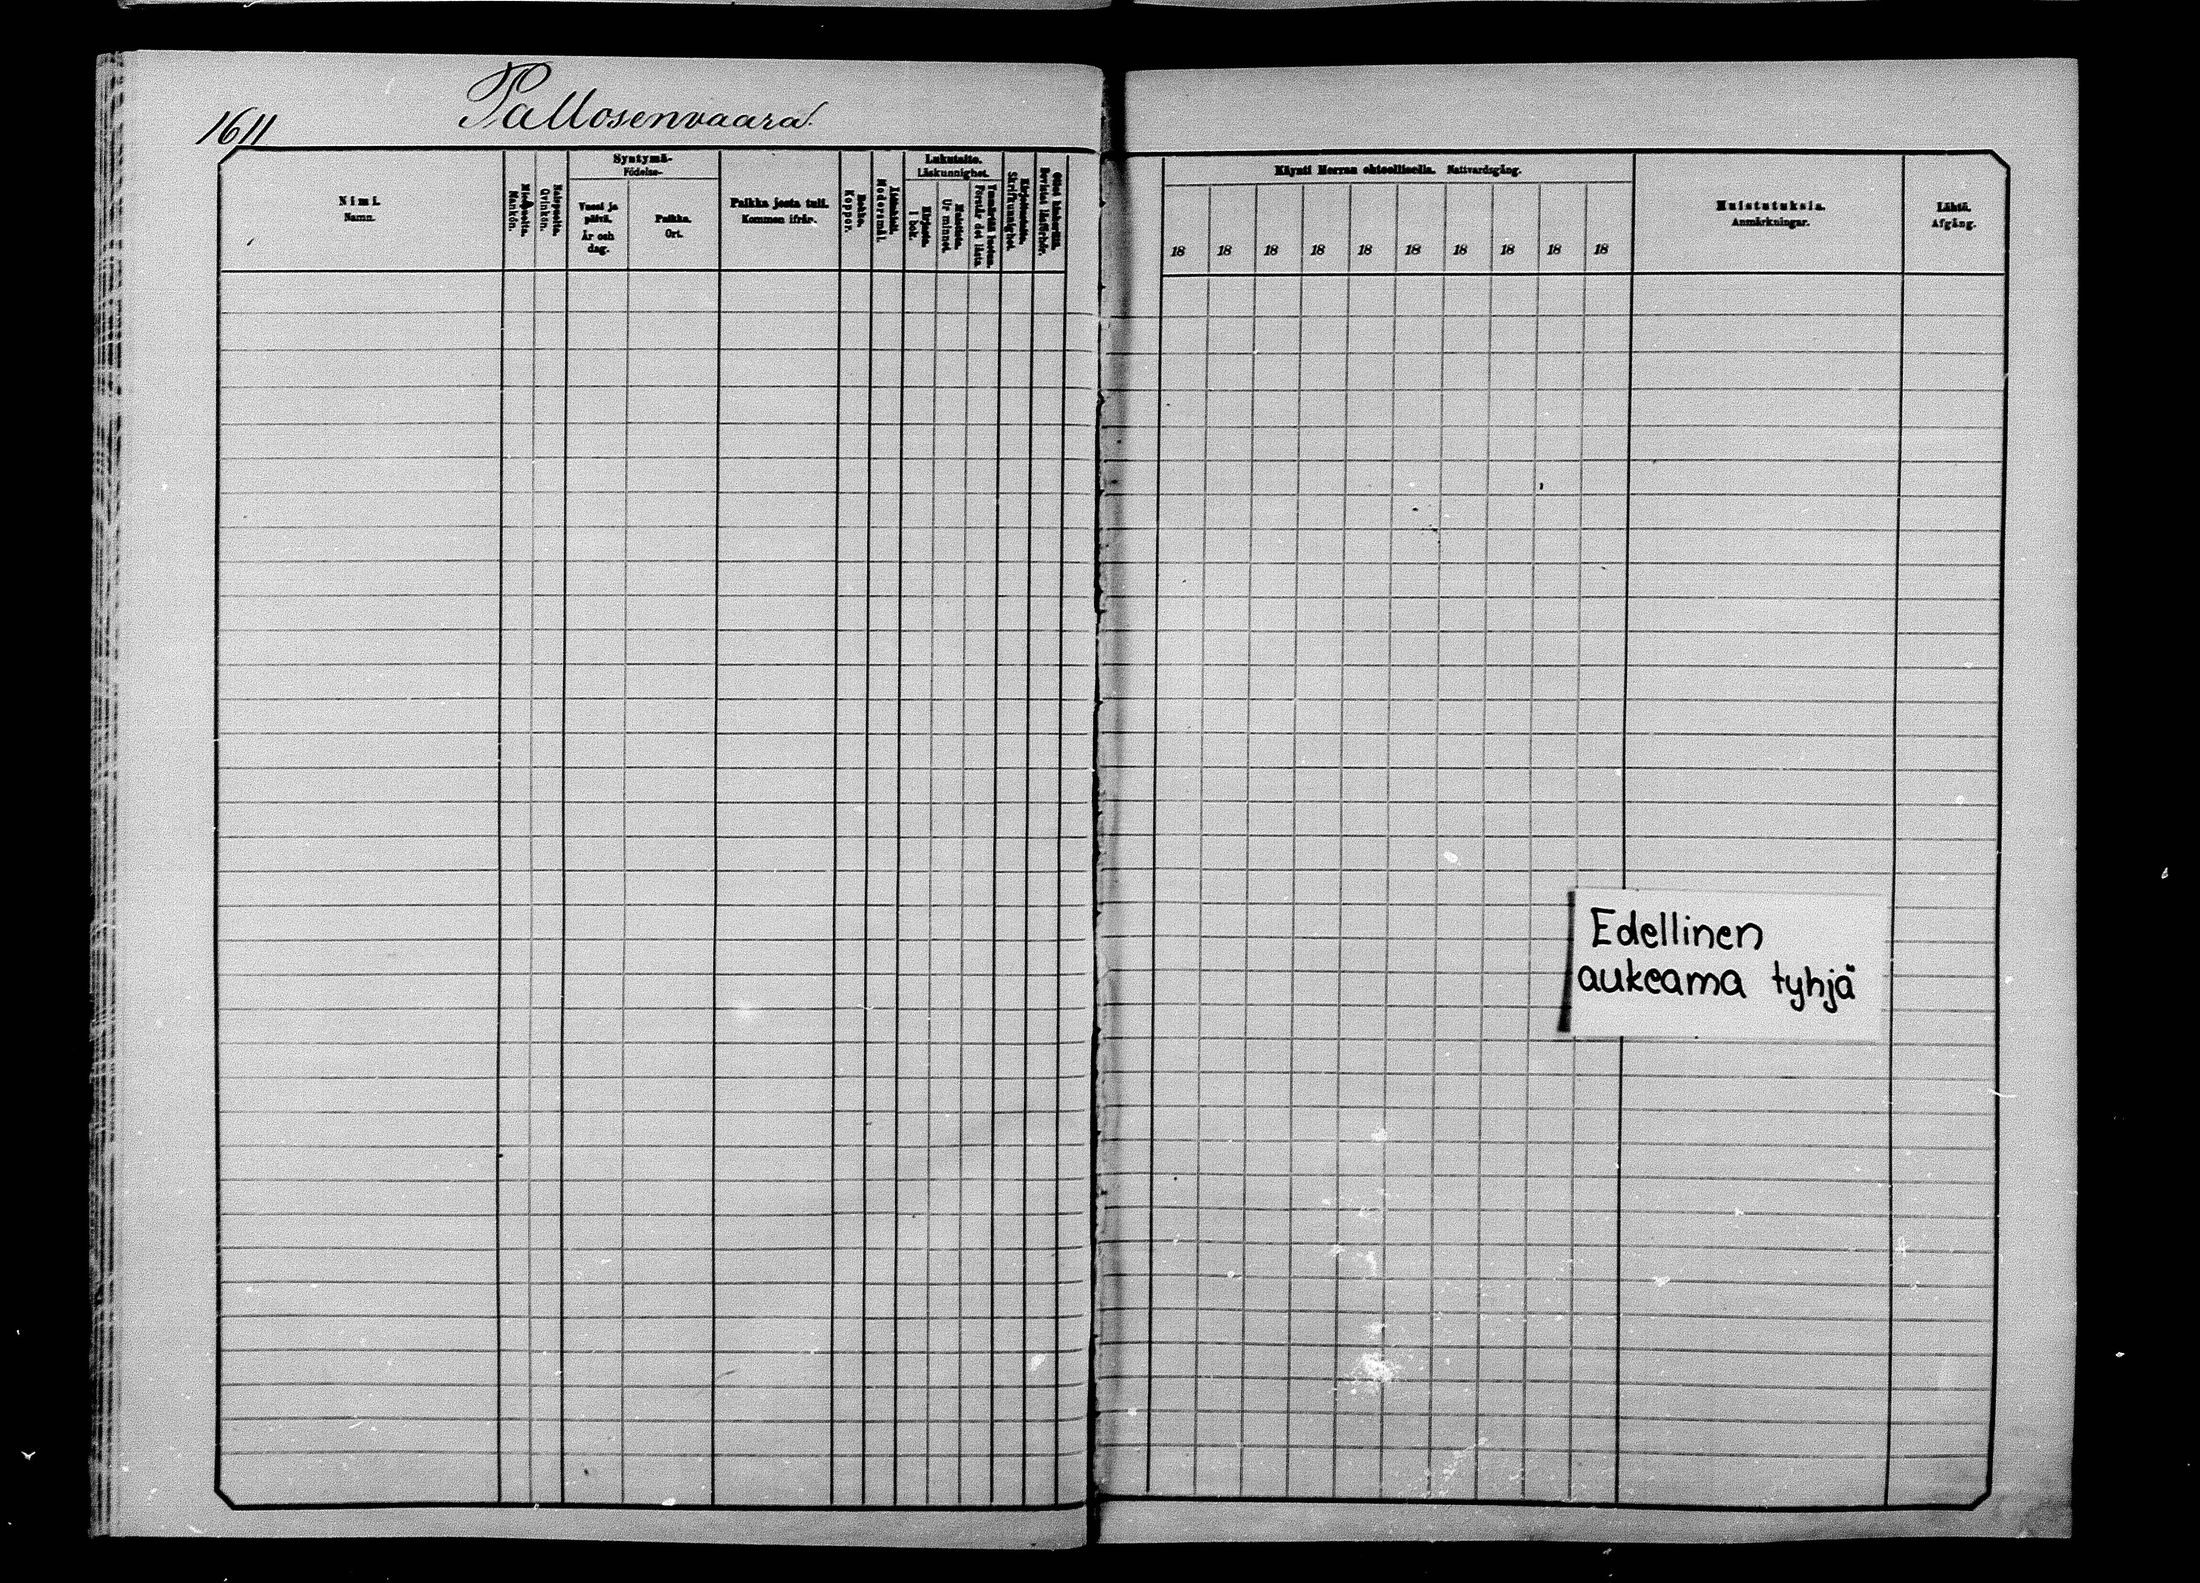 1611
Pallosenvaara.
Nimi.
Namn.
Miespuolta.
Mankön.
Naispuolta.
Qvinkön.
Syntymä-
Födelse-
Vuosi ja
päivä.
År och
dag.
Paikka.
Ort.
Paikka josta tuli.
Kommen ifrån.
Rokko.
Koppor.
Äidinkieli.
Modersmål.
Lukutaito.
Läskunnighet.
Kirjasta.
I bok.
Muistista.
Ur minnet.
Ymmärtää luetun.
Förstår det lästa.
Kirjoitustaito.
Skrifkunnighet.
Bevistat läsförhör.
Käynti Herran ehtoollisella. Nattvardsgång.
18 18 18 18 18 18 18 18 18 18
Muistutuksia.
Anmärkningar.
Lähtö.
Afgång.
Edellinen
aukeama tyhjä